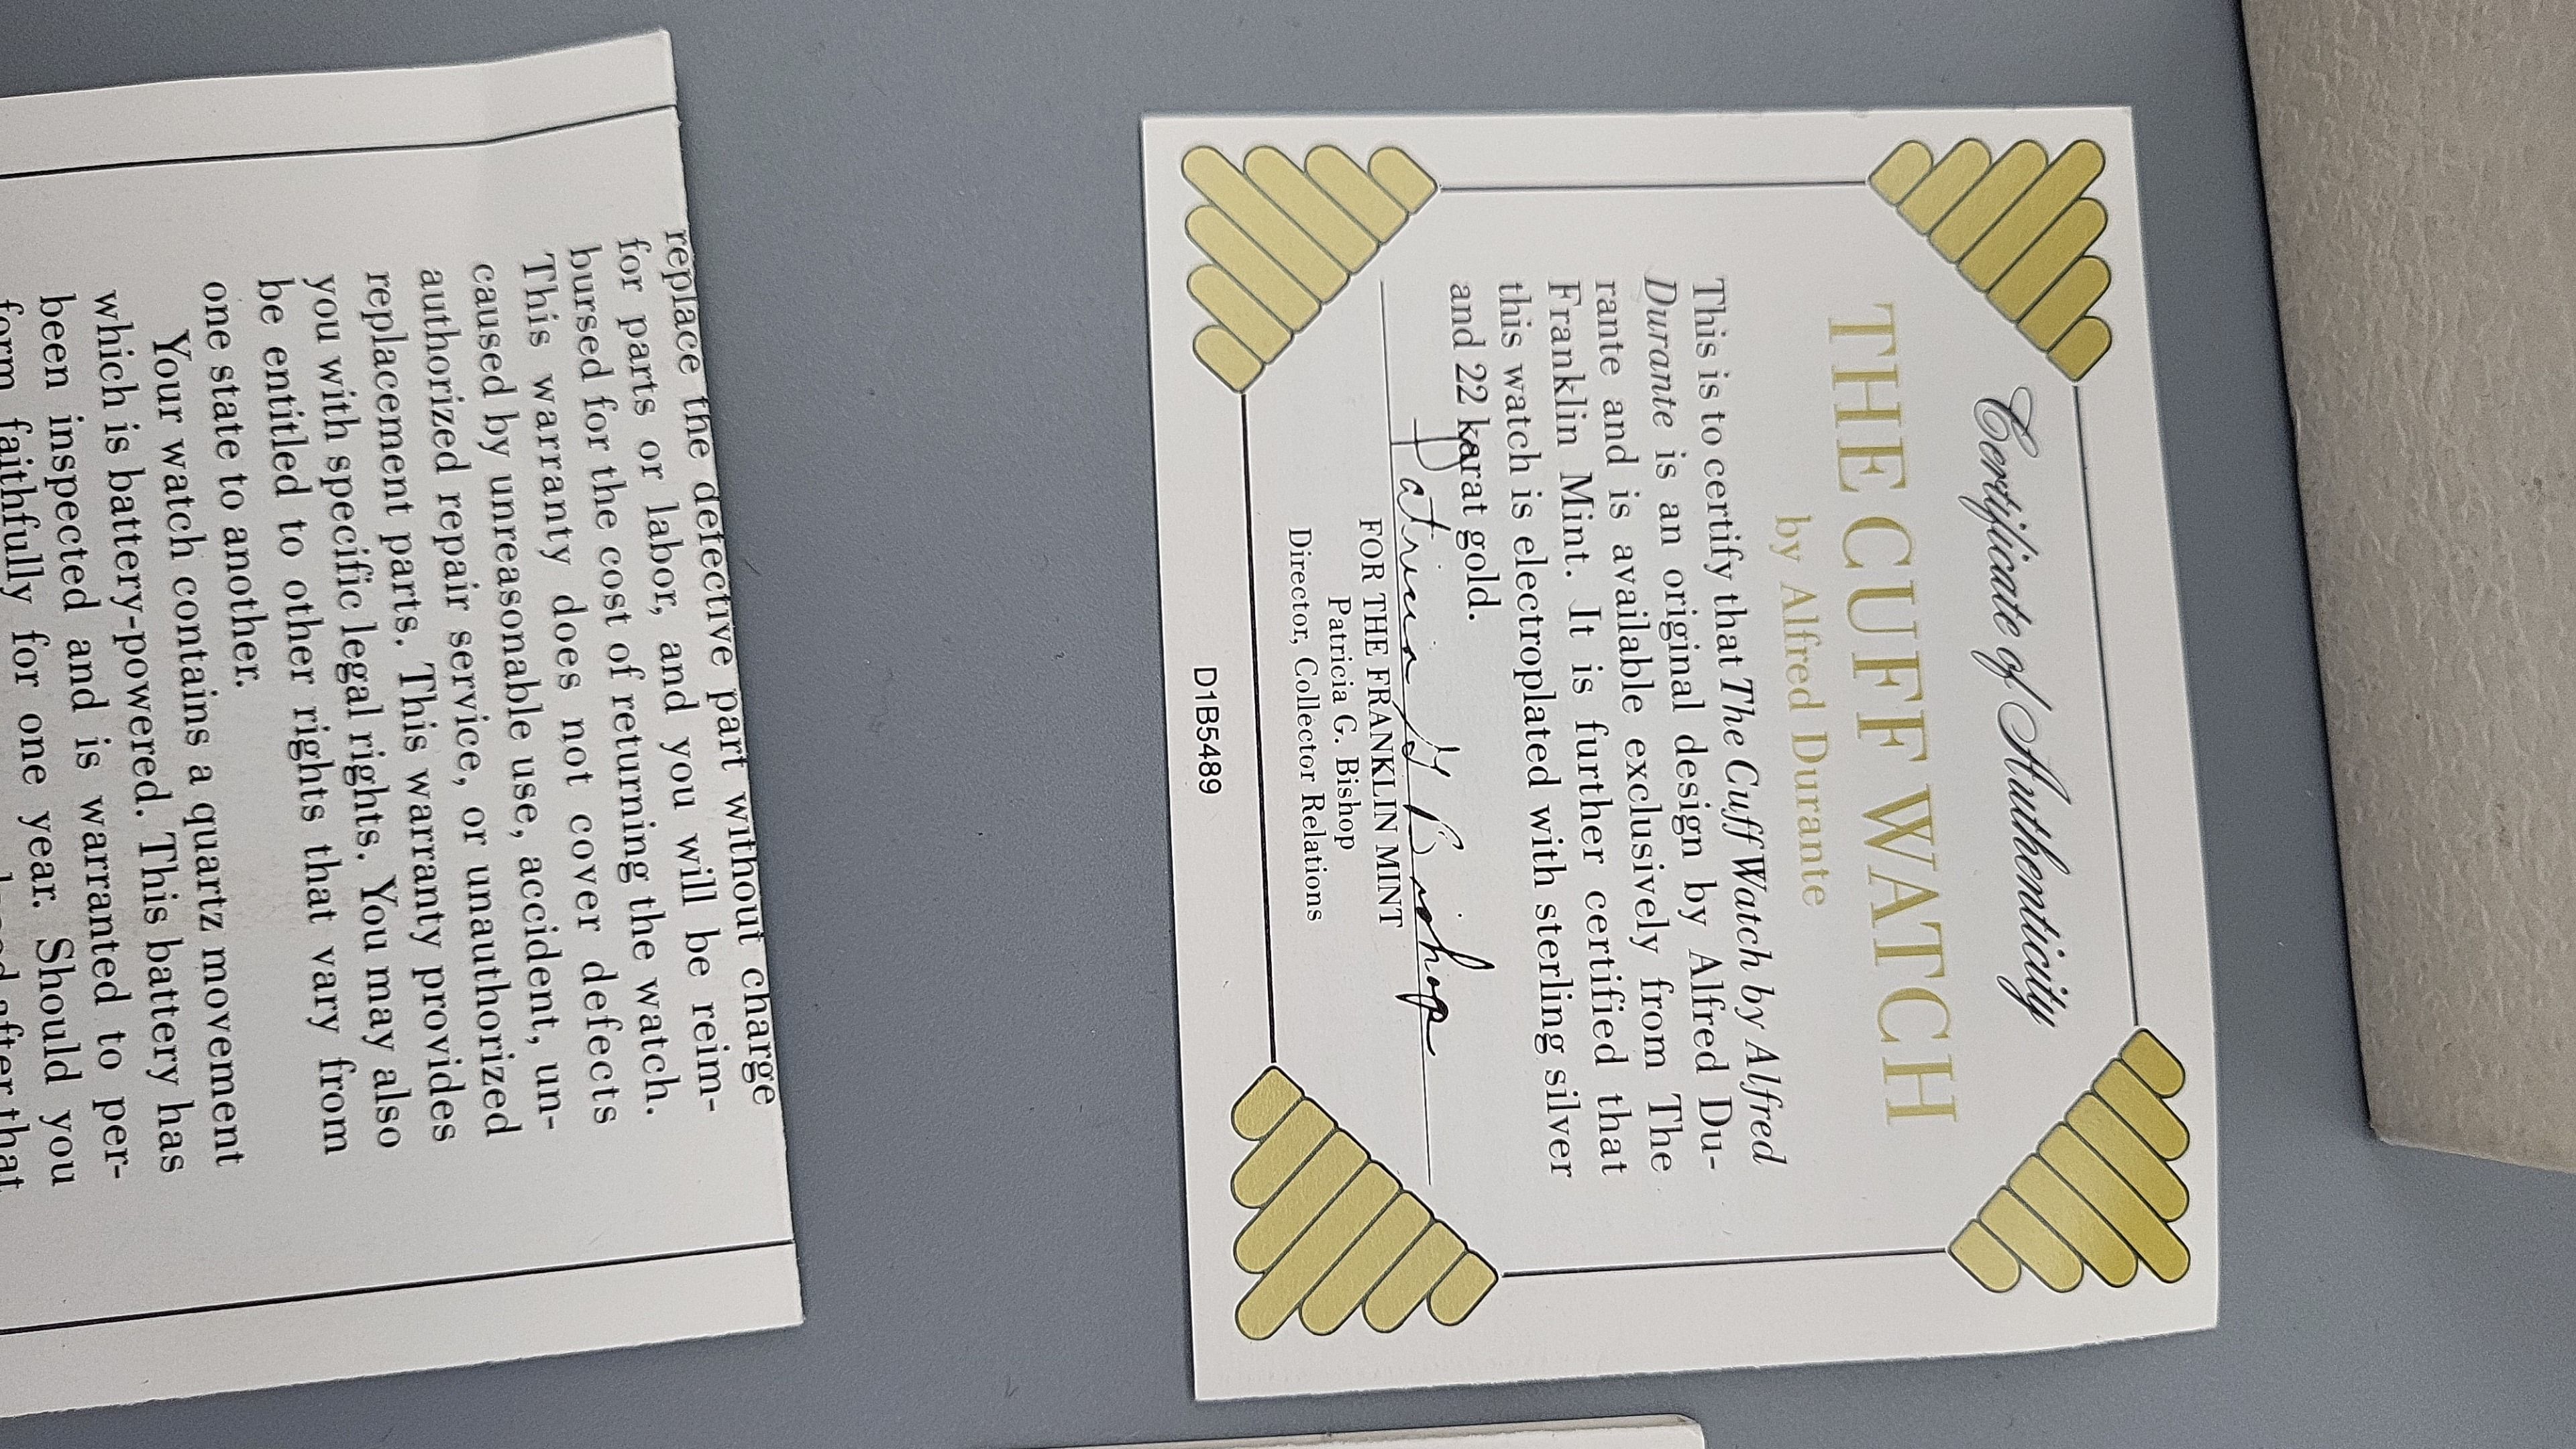 Certificate of Authenticity
THE CUFF WATCH
by Alfred Durante
This is to certify that The Cuff Watch by Alfred
Durante is an original design by Alfred Du-
rante and is available exclusively from The
Franklin Mint. It is further certified that
this watch is electroplated with sterling silver
and 22 karat gold.
Patricia G. Bishop
FOR THE FRANKLIN MINT
Patricia G. Bishop
Director, Collector Relations
D1B5489
replace the defective part without charge
for parts or labor, and you will be reim-
bursed for the cost of returning the watch.
This warranty does not cover defects
caused by unreasonable use, accident, un-
authorized repair service, or unauthorized
replacement parts. This warranty provides
you with specific legal rights. You may also
be entitled to other rights that vary from
one state to another.
Your watch contains a quartz movement
which is battery-powered. This battery has
been inspected and is warranted to per-
form faithfully for one year. Should you
after that